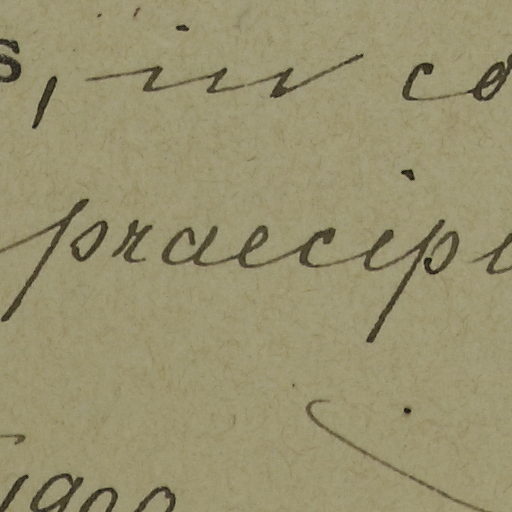 s, in co
praecipu
1900